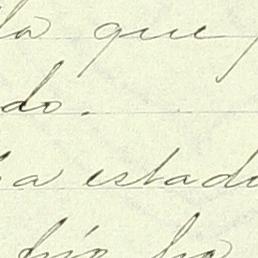 la que
do.
ha estado
hijo ha